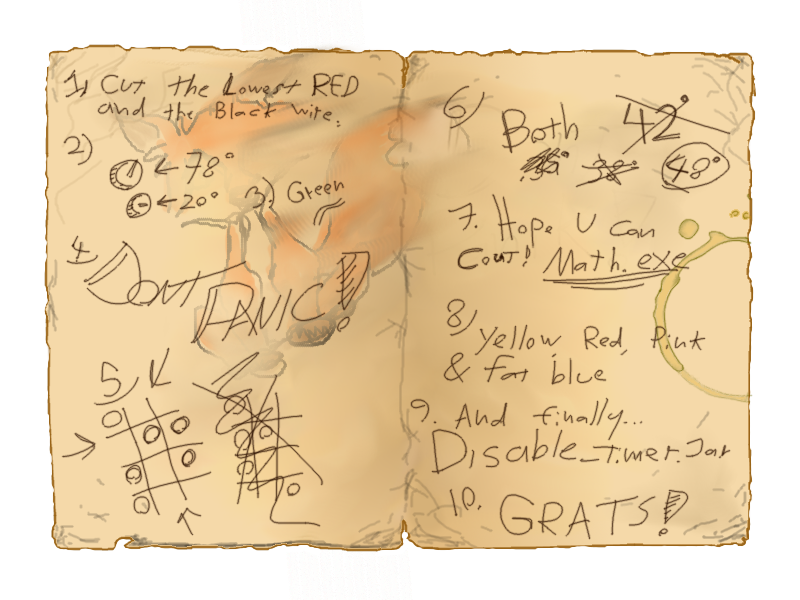 1) Cut the Lowest RED
and the Black wire.
2)
← 78°
← 20°
3) Green
4
Dont
PANIC!
5)
6) Both 42°
38° 48°
7. Hope U Can
Cout! Math.exe
8) Yellow, Red, Pink
& Fat blue
9. And finally...
Disable_timer.Jar
10. GRATS!